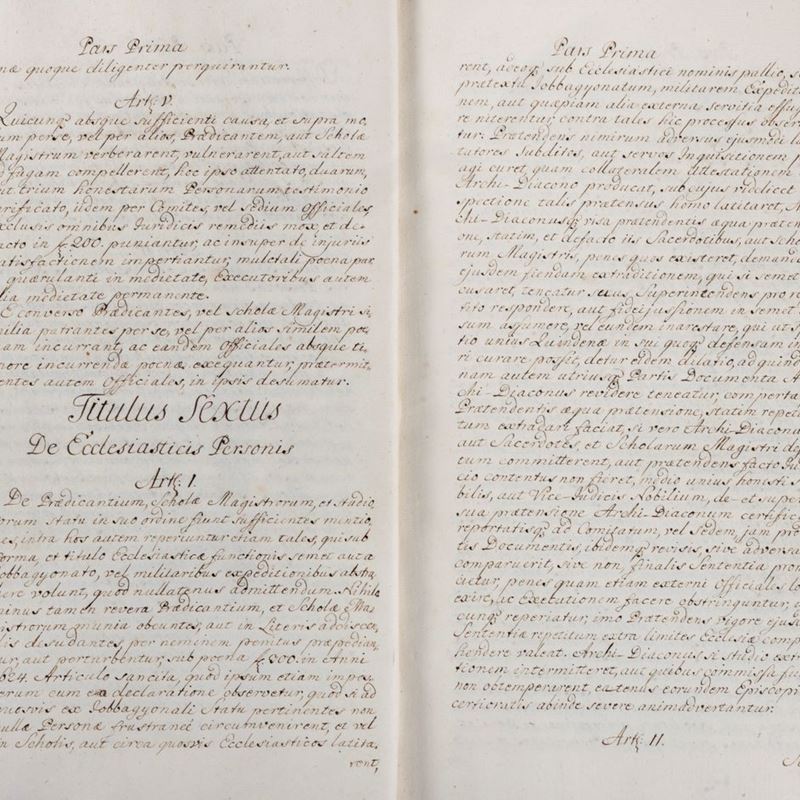 Pars Prima
næ quoque diligenter perquirantur.
Art: V.
Quicunq absque sufficienti causa, et supra mo,
um per se, vel per alios, Prædicantem, aut Scholæ
Magistrum verberarent, vulnerarent, aut saltem
ad fugam compellerent, hoc ipso attentato, duarum,
aut trium honestarum Personarum testimonio
verificato, iidem per Comites, vel Sedium Officiales,
exclusis omnibus Iuridicis remediis mox, et de,
facto in f. 200. puniantur, ac insuper de injuriis
satisfactionem impertiantur, mulctali poena par,
quærulanti in medietate, Executoribus autem
alia medietate permanente.
E converso Prædicantes, vel scholæ Magistri si,
milia patrantes per se, vel per alios similem poe,
nam incurrant, ac eandem Officiales absque ti,
more incurrenda poenæ exequantur, prætermit,
tentes autem Officiales, in ipsis desumatur.
Titulus Sextus
De Ecclesiasticis Personis
Art: I.
De Prædicantium, Scholæ Magistrorum, et studio,
orum statu in suo ordine fiunt sufficientes mentio,
nes, intra hos autem reperiuntur etiam tales, qui sub
forma, et titulo Ecclesiasticæ functionis semet aut a
Jobbagyonato, vel militaribus expeditionibus abstra,
here volunt, quod nullatenus admittendum. Nihilo
minus tamen revera Prædicantium, et Scholæ Ma,
gistrorum munia obeuntes, aut in Literis addiscen,
dis desudantes, per neminem penitus præpedian,
tur, aut perturbentur, sub poena f. 200. in Anni
1624. Articulo sancita, quod ipsum etiam impos,
terum cum ea declaratione observetur, quod si ad
quosvis ex Jobbagyonali Statu pertinentes non
nullæ Personæ frustraneè circumvenirent, et vel
in Scholis, aut circa quosvis Ecclesiasticos latita,
rent,
Pars Prima
rent, adeoq sub Ecclesiastici nominis pallio,
prætextu Jobbagyonatum, militarem Expeditio
nem, aut quæpiam alia externa servitia effug
re niterentur, contra tales hic processus obser
tur: Prætendens nimirum adversus ejusmodi la
tatores Subditos, aut servos Inquisitionem p
agi curet, quam collateralem attestationem
Archi-Diacono producat, sub cujus videlicet
spectione talis prætensus homo latitaret, A
chi-Diaconusq visa prætendentis æqua præten
one, statim, et defacto iis Sacerdotibus, aut schola
rum Magistris, penes quos existeret, demand
ejusdem fiendam extraditionem, qui si semet
cusaret, teneatur Superintendens pro re
tito respondere, aut fideijussionem in semet
sum assumere, vel eundem inarestare, qui ut s
tio unius Quindenæ in sui quoq defensam in
ri curare possit, detur eidem dilatio, ad quind
nam autem utriusq Partis Documenta A
chi-Diaconus revidere teneatur, comperta
Prætendentis æqua prætensione, statim repeti
tum extradari faciat, si vero Archi-Diacon
aut Sacerdotes, et Scholarum Magistri do
tum committerent, aut prætendens facto ju
cio contentus non fieret, medio unius honesti
bilis, aut Vice-Judicis Nobilium, de- et super
sua prætensione Archi-Diaconum certific
reportatisq ad Comitatum, vel Sedem, jam pro
tis Documentis, ibidemq revisis, sive adversa
comparuerit, sive non, finalis Sententia pron
cietur, penes quam etiam externi Officiales
exire, ac Executionem facere obstringuntur,
cunq reperiatur, imo Prætendens vigore ejus
Sententiæ repetitum extra limites Ecclesiæ comp
hendere valeat. Archi-Diaconus si studio extra
tionem intermitteret, aut quibus commissa fu
non obtemperarent, eatenus eorundem Episcop
certioratis abinde severe animadvertantur.
Art: II.